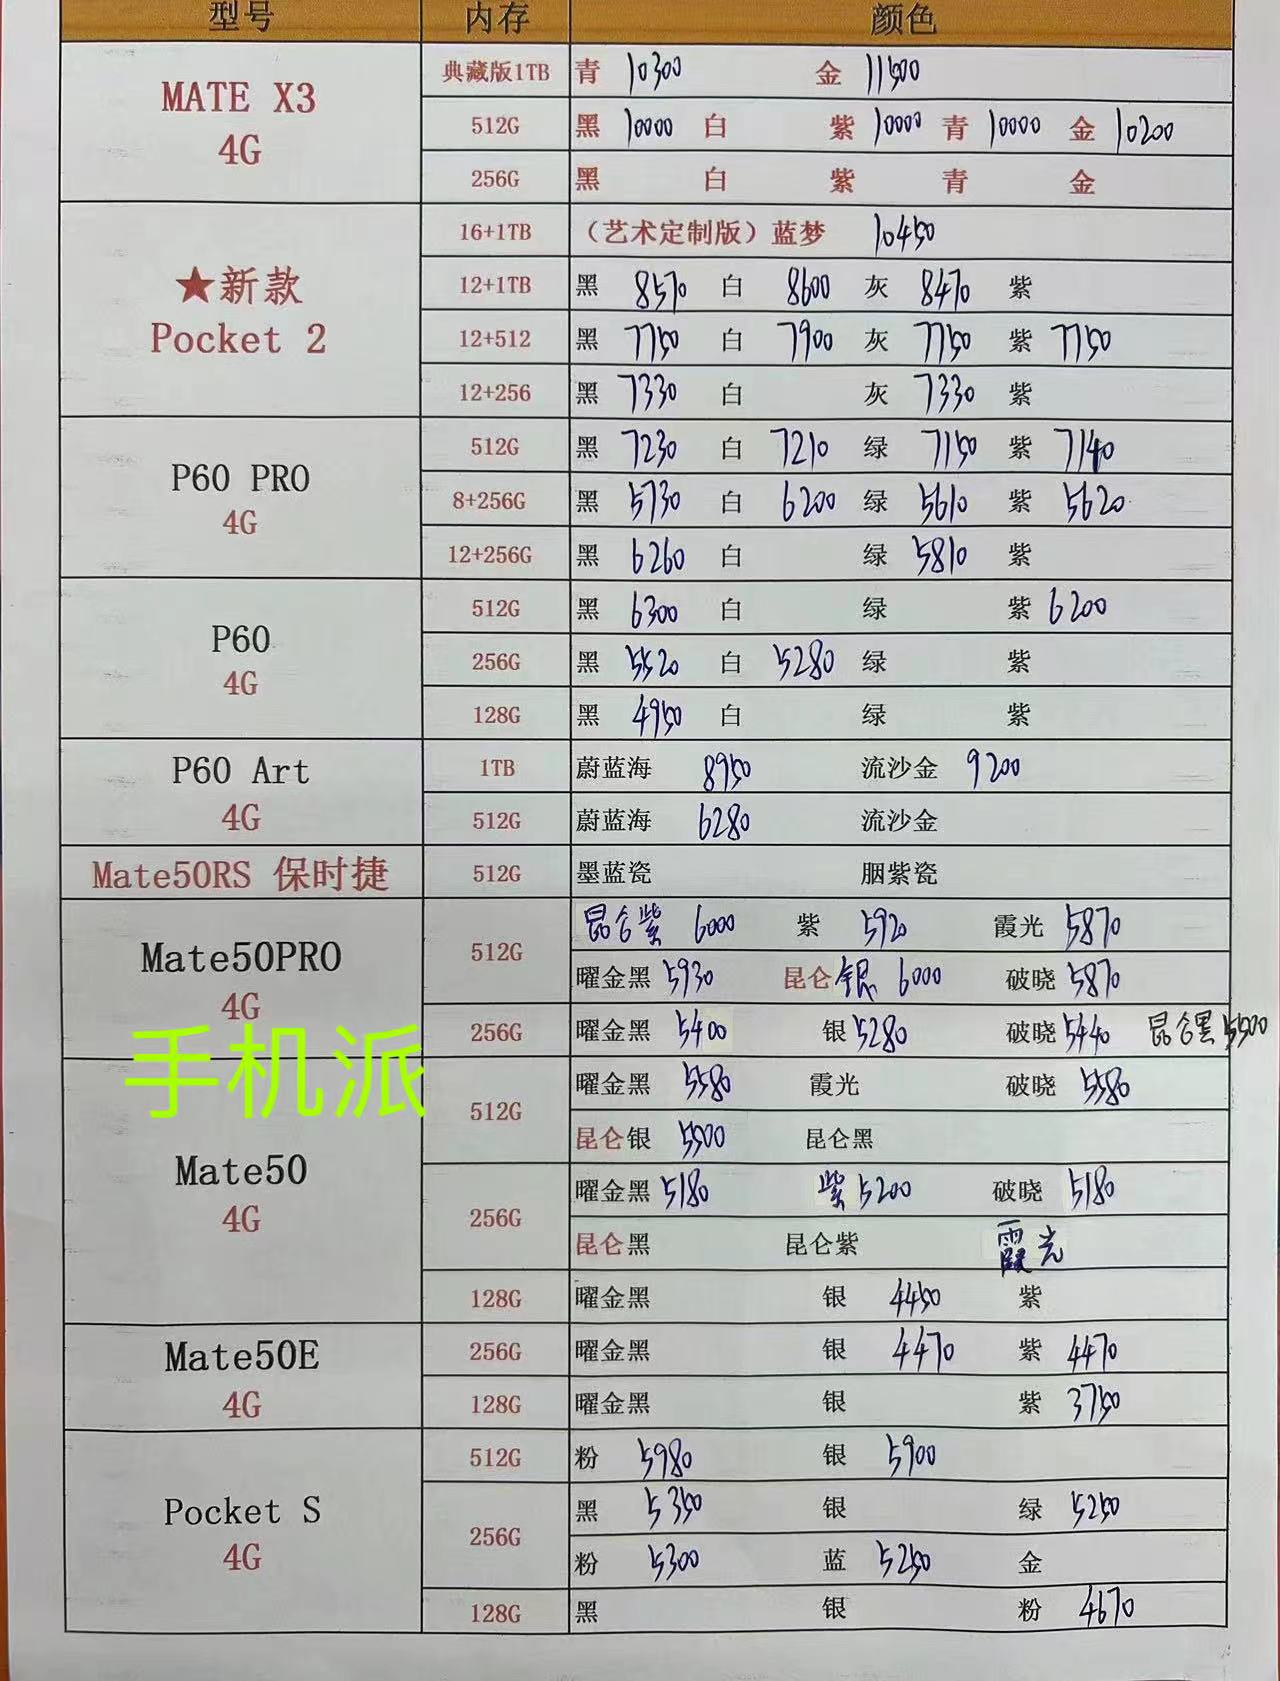 型号 内存 颜色
MATE X3 4G
典藏版1TB 青 10300 金 11500
512G 黑 10000 白 紫 10000 青 10000 金 10200
256G 黑 白 紫 青 金
★新款 Pocket 2
16+1TB （艺术定制版）蓝梦 10450
12+1TB 黑 8570 白 8600 灰 8470 紫
12+512 黑 7750 白 7900 灰 7750 紫 7750
12+256 黑 7330 白 灰 7330 紫
P60 PRO 4G
512G 黑 7230 白 7210 绿 7150 紫 7140
8+256G 黑 5730 白 6200 绿 5610 紫 5620
12+256G 黑 6260 白 绿 5810 紫
P60 4G
512G 黑 6300 白 绿 紫 6200
256G 黑 5520 白 5280 绿 紫
128G 黑 4950 白 绿 紫
P60 Art 4G
1TB 蔚蓝海 8950 流沙金 9200
512G 蔚蓝海 6280 流沙金
Mate50RS 保时捷 512G 墨蓝瓷 胭紫瓷
Mate50PRO 4G
512G 昆仑紫 6000 紫 5920 霞光 5870
曜金黑 5930 昆仑银 6000 破晓 5870
256G 曜金黑 5400 银 5280 破晓 5440 昆仑黑 5500
手机派
Mate50 4G
512G 曜金黑 5580 霞光 破晓 5580
昆仑银 5500 昆仑黑
256G 曜金黑 5180 紫 5200 破晓 5180
昆仑黑 昆仑紫 霞光
128G 曜金黑 银 4450 紫
Mate50E 4G
256G 曜金黑 银 4470 紫 4470
128G 曜金黑 银 紫 3750
Pocket S 4G
512G 粉 5980 银 5900
256G 黑 5350 银 绿 5250
粉 5300 蓝 5250 金
128G 黑 银 粉 4670